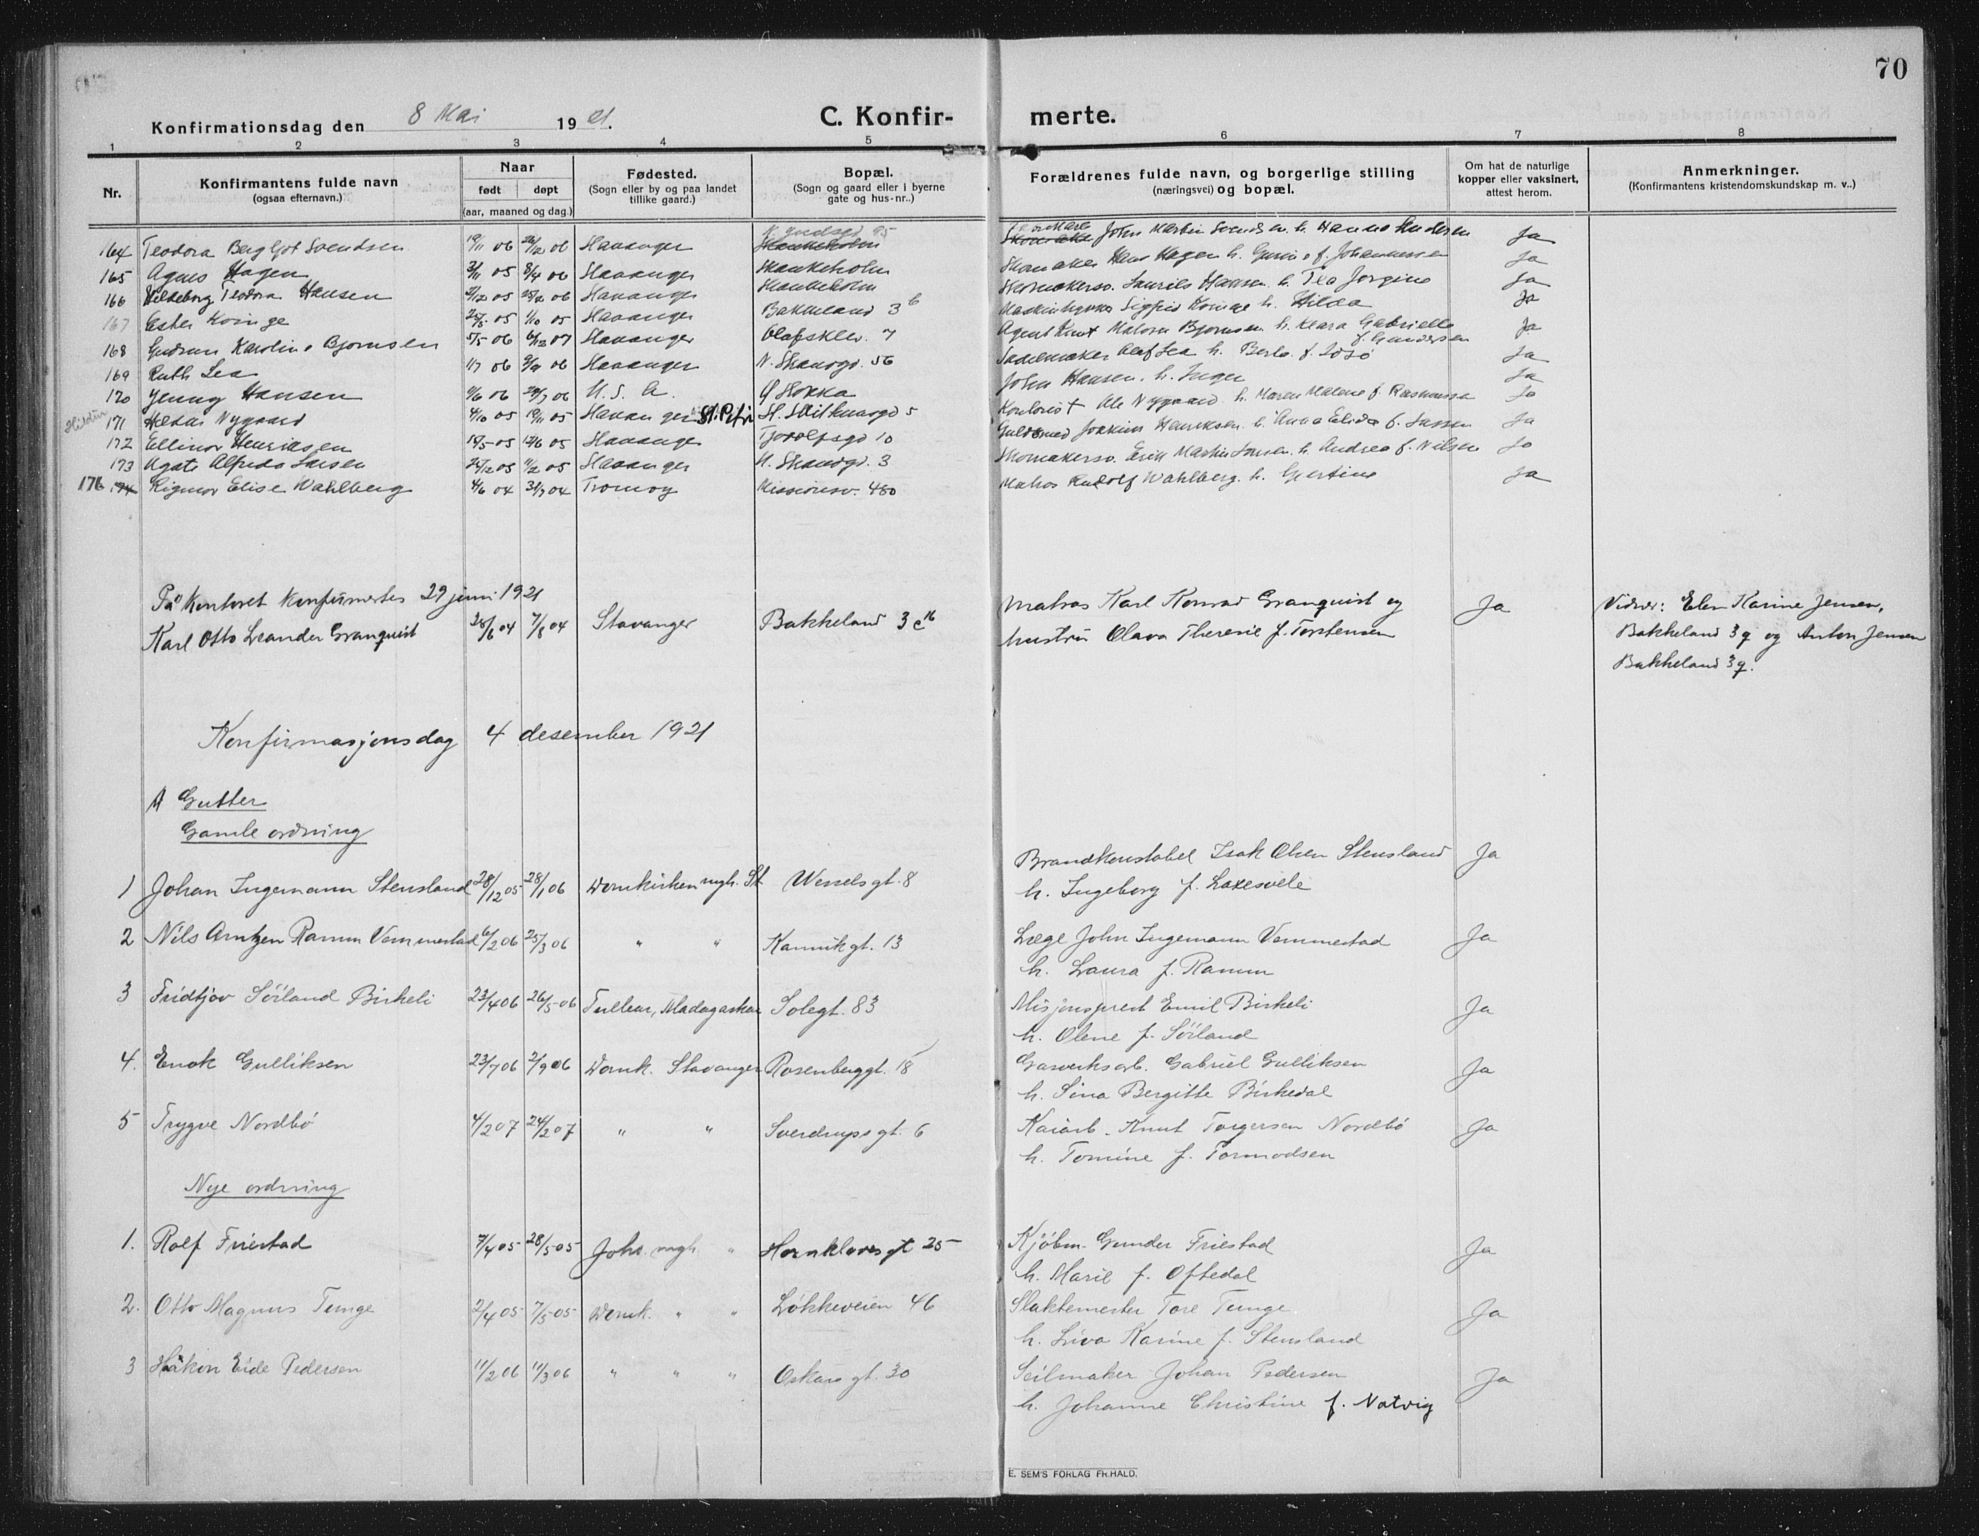 70
Konfirmationsdag den 8 Mai 1921.
C. Konfir- merte.
1 2 3 4 5 6 7 8
Nr.
Konfirmantens fulde navn
(ogsaa efternavn.)
Naar
født døpt
(aar, maaned og dag.)
Fødested.
(Sogn eller by og paa landet
tillike gaard.)
Bopæl.
(Sogn og gaard eller i byerne
gate og hus-nr..)
Forældrenes fulde navn, og borgerlige stilling
(næringsvei) og bopæl.
Om hat de naturlige
kopper eller vaksinert,
attest herom.
Anmerkninger.
(Konfirmantens kristendomskundskap m. v..)
164 Teodora Bergljot Svendsen 19/11 06 26/12 06 Stavanger Skankeholm John Martin Svendsen h. Hanna Andersen Ja
165 Agnes Hagen 3/11 05 8/4 06 Stavanger Skankeholm Skomaker Hans Hagen h. f. Johannessen Ja
166 Hildeborg Teodora Hansen 05 06 Stavanger Skankeholm Skomakersv. Laurits Hansen h. Tea Jorgine Ja
167 Ester Kvinge 05 1/10 05 Stavanger Bakkeland 3 b Sigfrid Kvinge h. Hilda Ja
168 Gudrun Karoline Bjørnsen 5/5 06 6/12 07 Stavanger Olafsklev. 7 Agent Knut Bjørnsen h. Klara Gabrielle f. Gundersen Ja
169 Ruth Lea 1/7 06 06 Stavanger N. Strandgd. 56 Sadelmaker Olaf Lea h. Berta f. Ja
170 Jenny Hansen 6/6 06 06 U. S. A. John Hansen. h. Inger Ja
Hildur
171 Nygaard 4/10 05 19/11 05 Stavanger St. Petri 5 Kontorist Ole Nygaard h. Maren Malene f. Rasmussen Ja
172 Ellinor Henriksen 05 05 Stavanger Tjodolfsgd 10 Guldsmed Joakim Henriksen h. Anna Elida f. Ja
173 Agate Alfreda Larsen 05 11/2 05 Stavanger N. Strandgd. 3 Skomakersv. Erik Martin Larsen h. Andrea f. Nilsen Ja
176 174 Rigmor Elise Wahlberg 4/6 04 31/7 04 Tromøy Missionsv. 480 Matros Rudolf Wahlberg. h. Gjertine Ja
På kontoret konfirmertes 29 juni 1921
Karl Otto Leander Granquist 04 7/8 04 Stavanger Bakkeland 3 c Matros Karl Konrad Granquist og Ja Vidner: Elen Karine Jensen,
hustru Olava Theresie f. Torstensen Bakkeland 3 q og Anton Jensen
Bakkeland 3 q.
Konfirmasjonsdag 4 desember 1921
A Gutter
Gamle ordning
1 Johan Ingemann Stensland 28/12 05 28/1 06 Domkirken mgh. St Wessels gt. 8 Brandkonstabel Isak Olsen Stensland Ja
h. Ingeborg f. Laxesvele
2 Nils Arntzen Ramm Vemmestad 6/2 06 25/3 06 " " Kannikgt. 13 Læge John Ingemann Vemmestad Ja
h. Laura f. Ramm
3 Fridtjov Söiland Birkeli 23/4 06 26/5 06 Tullear, Madagaskar Solegt. 83 Misjonsprest Emil Birkeli Ja
h. Olene f. Söiland
4. Enok Gulliksen 23/7 06 2/9 06 Domk. Stavanger Rosenberggt. 18 Gasverksarb. Gabriel Gulliksen Ja
h. Sina Bergitte Birkedal
5 Trygve Nordbö 4/2 07 24/2 07 " " Sverdrups gt. 6 Kaiarb. Knut Torgersen Nordbö Ja
h. Tomine f. Tormodsen
Nye ordning
1. Rolf Friestad 7/4 05 28/5 05 Joh. mgh. " Hornklovesgt 25 Kjöbm. Gunder Friestad Ja
h. Marie f. Oftedal
2. Otto Magnus Tunge 2/4 05 7/5 05 Domk. " " Løkkeveien 46 Slaktemester Tore Tunge Ja
h. Liva Karine f. Stensland
3 Håkon Eide Pedersen 11/2 06 11/3 06 " " " Oskars gt. 30 Seilmaker Johan Pedersen Ja
h. Johanne Christine f. Natvig
E. SEM'S FORLAG FR.HALD.